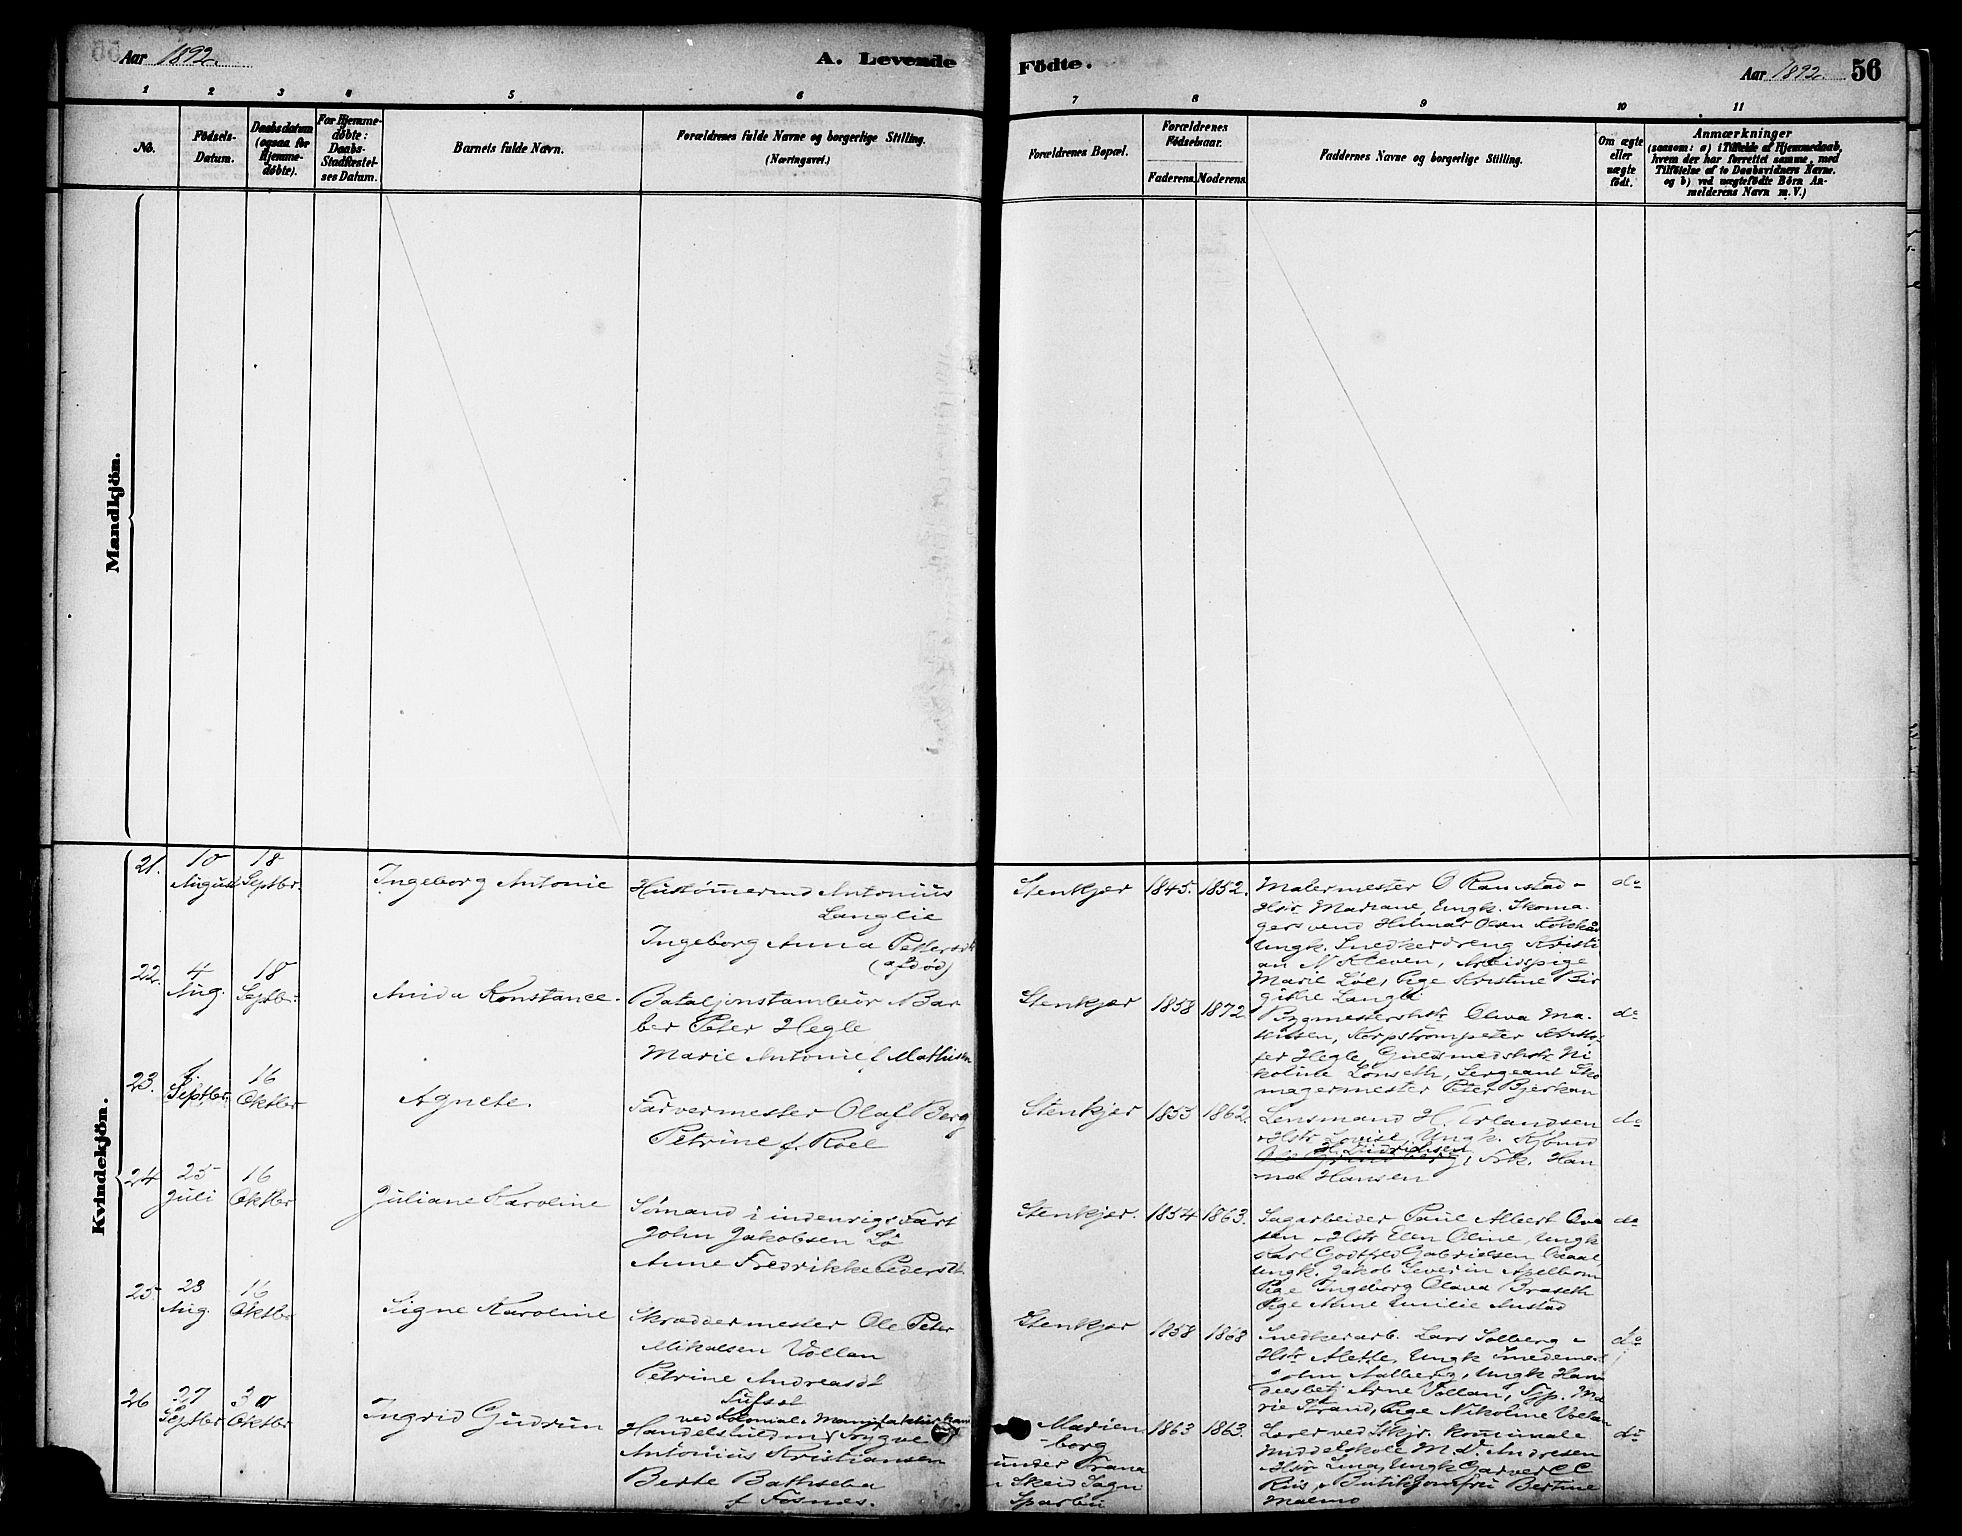 Aar 1892.
A. Levende Födte.
Aar 1892. 56
1 2 3 4 5 6 7 8 9 10 11
No.
Födsels-Datum.
Daabsdatum (ogsaa for Hjemmedöbte).
For Hjemmedöbte: Daabs-Stadfæstelses Datum.
Barnets fulde Navn.
Forældrenes fulde Navne og borgerlige Stilling.
(Næringsvei.)
Forældrenes Bopæl.
Forældrenes Födselsaar.
Faderens. Moderens.
Faddernes Navne og borgerlige Stilling.
Om ægte eller uægte födt.
Anmærkninger
(saasom: a) i Tilfælde af Hjemmedaab,
hvem der har forrettet samme, med
Tilföielse af to Daabsvidners Navne.
og b) ved uægtefödte Börn An-
melderens Navn m. V.)
Mandkjön.
Kvindekjön.
21. 10 August 18 Septbr. Ingeborg Antonie
Antonius
Langlie
Ingeborg Anna Petersdt
(afdød)
Stenkjer 1845. 1852.
Malermester O Ramstad -
Hstr Mariane, Ungk. Skoma-
gersvend Hilmar Olsen
Ungk. Snedkerdreng Kristi
an N Kleven, Arbeidspige
Marie Löe, Pige Kristine Bir
gitte Langli
do
22. 4 Aug. 18 Septbr. Anida Konstance.
Bataljonstambur Bar
ber Peter Hegle
Marie Antonie f Mathisen
Stenkjer 1858 1872
Bygmestershstr Oliva Ma-
thisen, Korpstrompeter
fer Hegle, Guldsmedshstr Ni
koline Lönseth, Sergeant Sko
magermester Peter Bjerkan
do
23. Septbr. 16 Oktbr Agnete.
Farvermester Olaf Berg
Petrine f. Roel
Stenkjer 1855 1862.
Lensmand H. Erlandsen
Hstr Louise, Ungk.
H. Didrichsen
Frk. Han
na Hansen
do
24 25 Juli 16 Oktbr Juliane Karoline
Sömand i indenrigs Fart
John Jakobsen Lö
Anne Fredrikke Pedersdt
Stenkjer. 1854 1863.
Sagarbeider Paul Albert
sen Hstr Elen Oline, Ungk
Karl Godtfred Gabrielsen
Ungk. Jakob Severin Apelhom
Pige Ingeborg Olava Braseth
Pige Anne Emilie Austad
do
25 23 Aug. 16 Oktbr Signe Karoline
Skræddermester Ole Peter
Mikalsen Vollan
Petrine Andreasdt
Stenkjer 1858 1868
Snedkerarb. Lars Solberg -
Hstr Alette, Ungk Smedemest
John Aalberg, Ungk Han
delsbetj Arne Vollan, Syp. Ma
rie Strand, Pige Nikoline Vollan
do
26 27 Septbr 30 Oktbr Ingrid Gudrun
ved Kolonial & Manufakturhan
Handelsbetjent Trygve
Antonius Kristiansen
Berte Bathseba
f Fosnes.
Marien
-borg
under Trana
Skeid Sogn
Sparbu
1863 1863.
Lærer ved Stkjr. komunale
Middelskole M. L. Andresen
Hstr Lina, Ungk Garver C C
Riis, Butikjomfru Bertine
Malmo
do